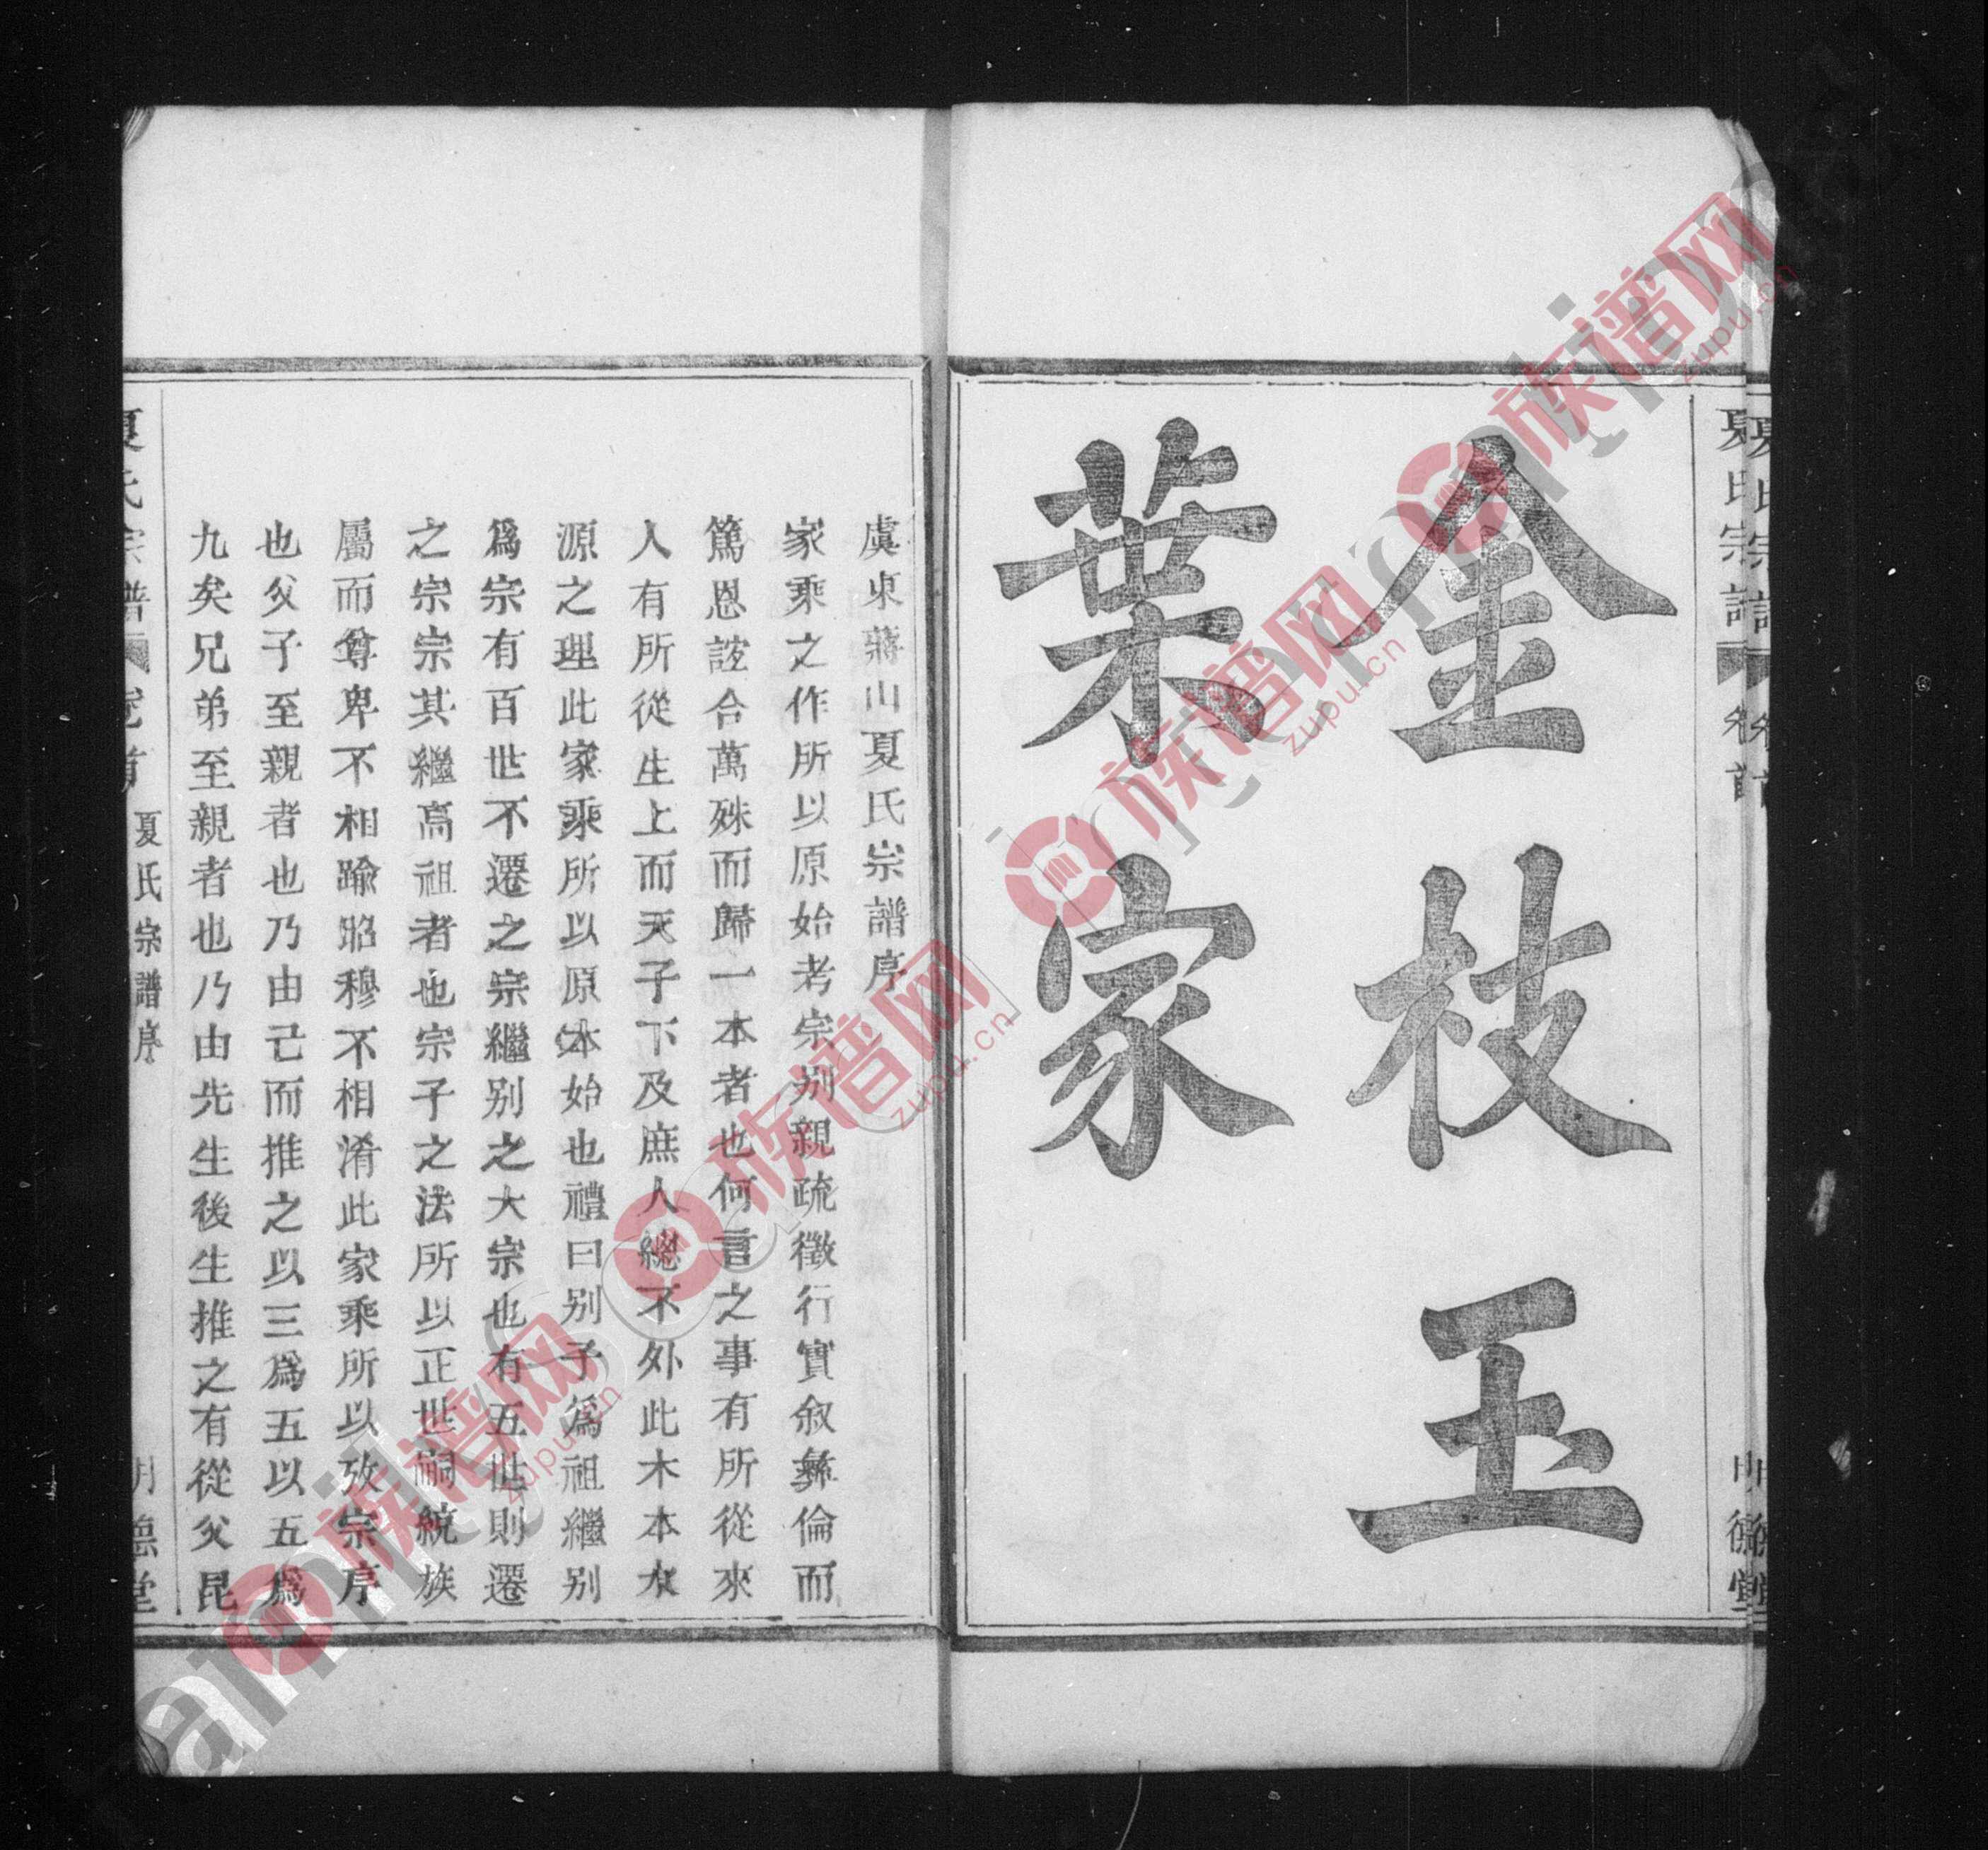 夏氏宗譜 卷首
金枝玉
葉家
虞東蔣山夏氏宗譜序
家乘之作所以原始考宗别親疏徵行實叙彝倫而
篤恩誼合萬殊而歸一本者也何言之事有所從來
人有所從生上而天子下及庶人總不外此木本水
源之理此家乘所以原本始也禮曰别子為祖繼别
為宗有百世不遷之宗繼别之大宗也有五世則遷
之宗宗其繼高祖者也宗子之法所以正世嗣統族
屬而尊卑不相踰昭穆不相淆此家乘所以攷宗序
也父子至親者也乃由己而推之以三為五以五為
九矣兄弟至親者也乃由先生後生推之有從父昆
夏氏宗譜 卷首 夏氏宗譜序 明德堂
族谱网 zupu.cn
族谱网 zupu.cn
族谱网 zupu.cn
族谱网 zupu.cn